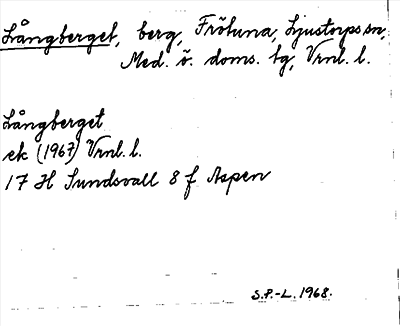 Långberget, berg, Frötuna, Ljustorps sn,
Med. ö. doms. tg, Vrnl. l.
Långberget
ek (1967) Vrnl. l.
17 H Sundsvall 8 f Aspen
S.P.-L. 1968.